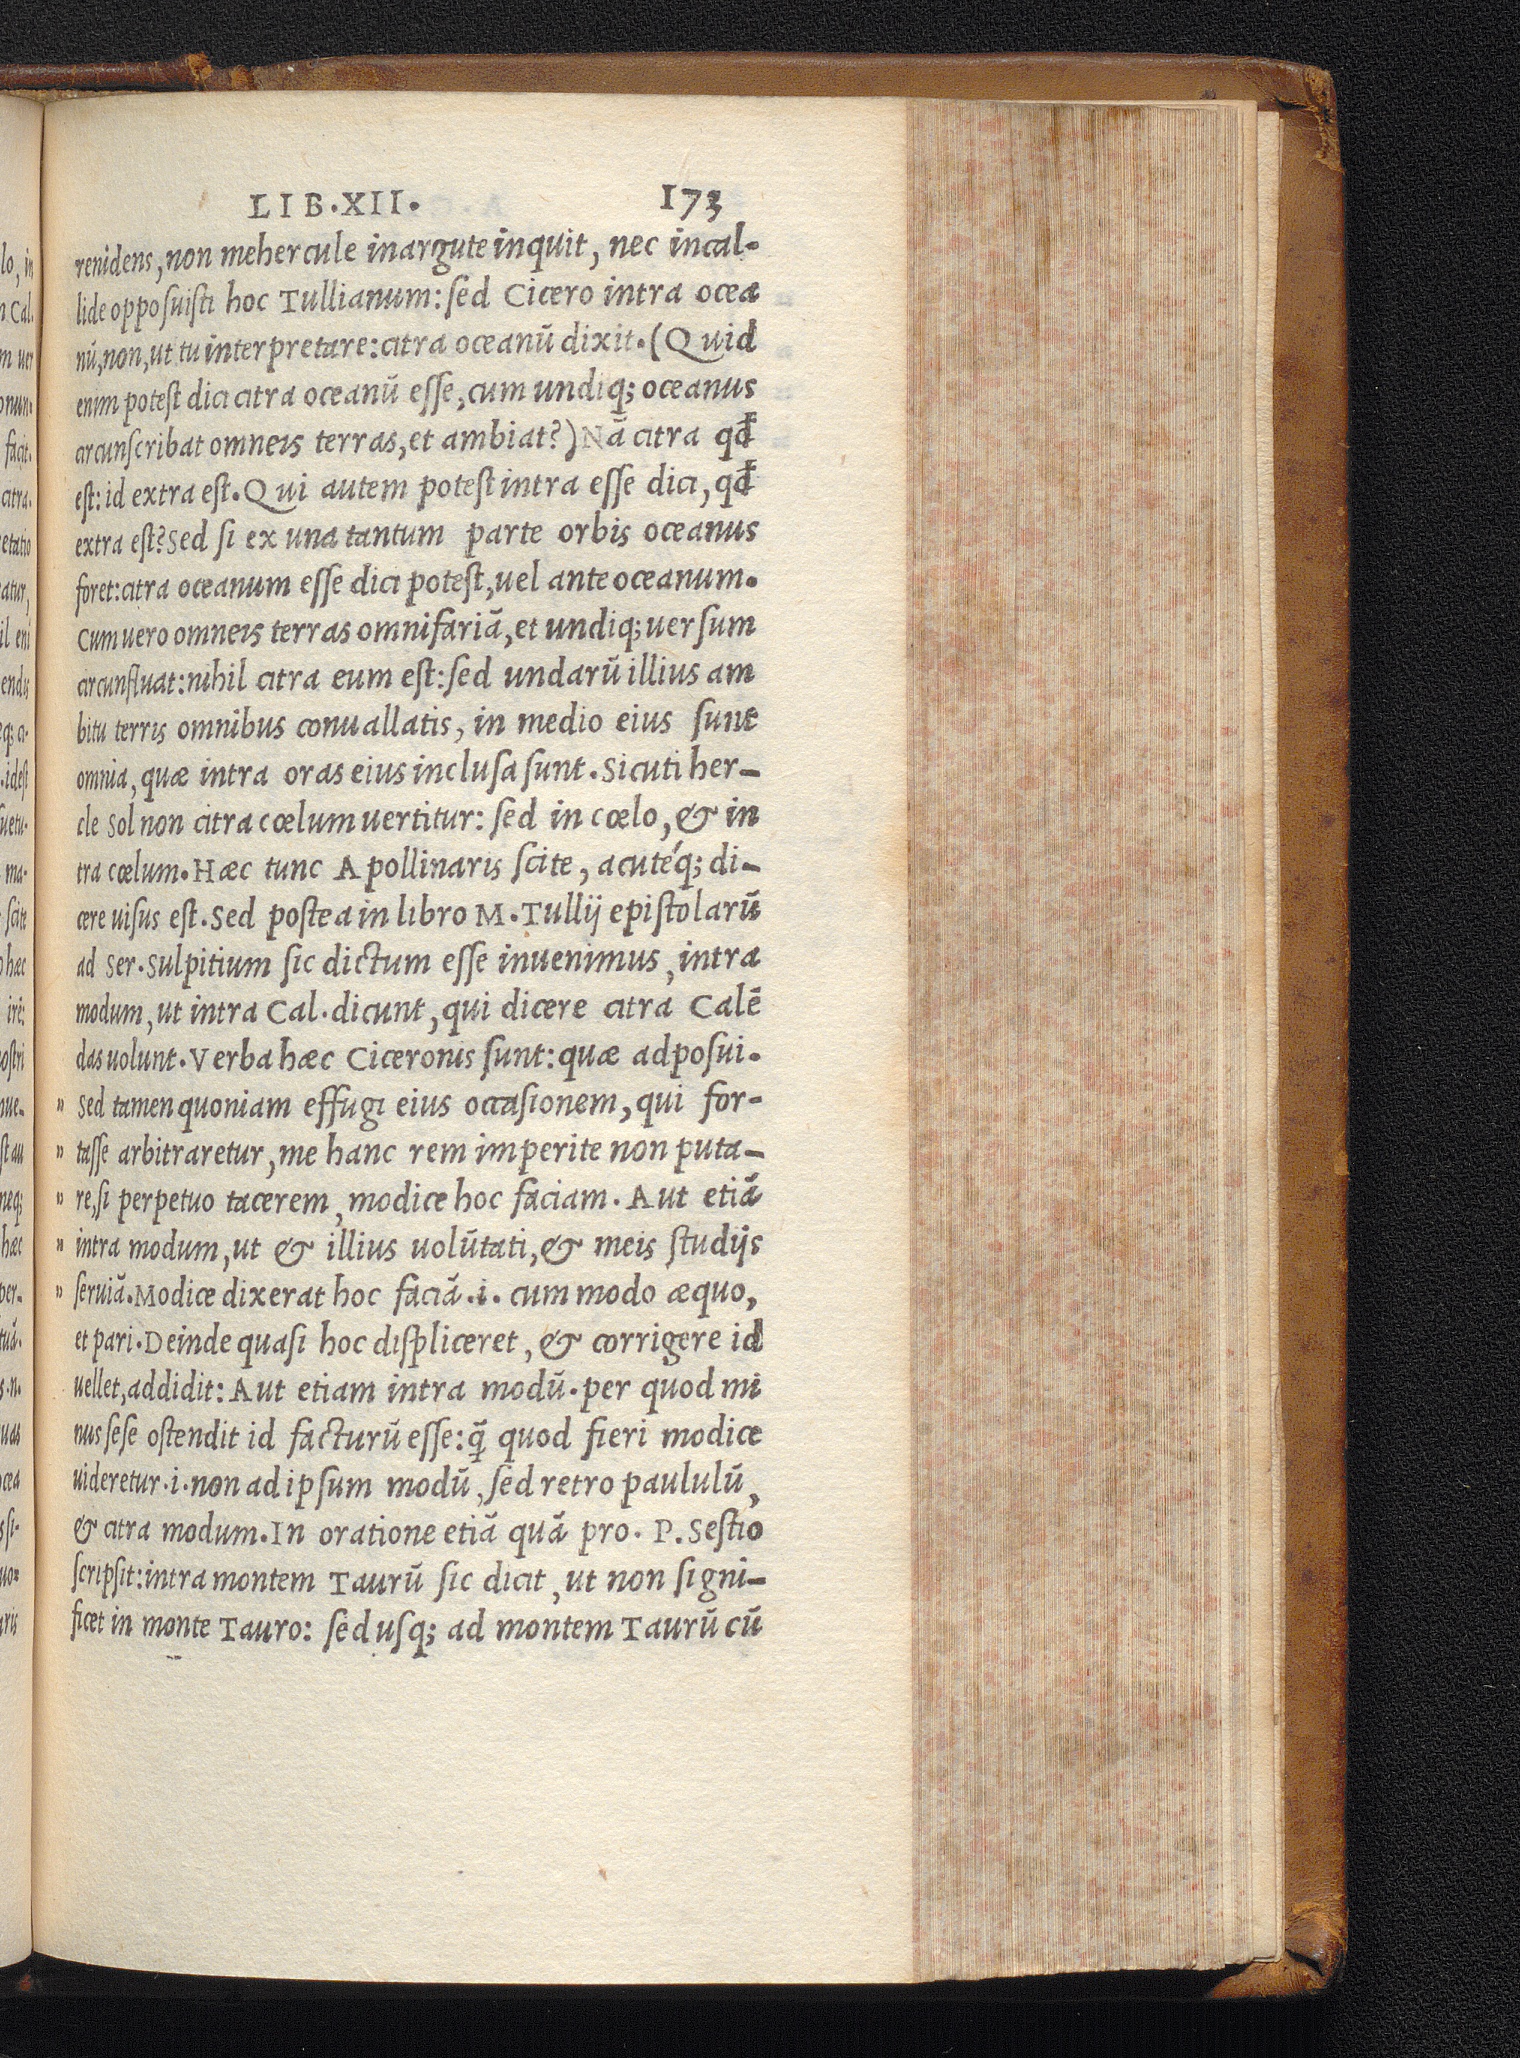 LIB.XII. 173
renidens, non mehercule inargute inquit, nec incal-
lide opposuisti hoc Tullianum: sed Cicero intra ocea
nū, non, ut tu interpretare: citra oceanū dixit. (Quid
enim potest dici citra oceanū esse, cum undiq; oceanus
circunscribat omneis terras, et ambiat?) Nā citra qđ
est: id extra est. Qui autem potest intra esse dici, qđ
extra est? Sed si ex una tantum parte orbis oceanus
foret: citra oceanum esse dici potest, uel ante oceanum.
Cum uero omneis terras omnifariā, et undiq; uersum
circunfluat: nihil citra eum est: sed undarū illius am
bitu terris omnibus conuallatis, in medio eius sunt
omnia, quæ intra oras eius inclusa sunt. Sicuti her-
cle Sol non citra cœlum uertitur: sed in cœlo, & in
tra cœlum. Hæc tunc Apollinaris scite, acutéq; di-
cere uisus est. Sed postea in libro M. Tullij epistolarū
ad Ser. Sulpitium sic dictum esse inuenimus, intra
modum, ut intra Cal. dicunt, qui dicere citra Calē
das uolunt. Verba hæc Ciceronis sunt: quæ adposui.
" Sed tamen quoniam effugi eius occasionem, qui for-
" tasse arbitraretur, me hanc rem imperite non puta-
" re, si perpetuo tacerem, modice hoc faciam. Aut etiā
" intra modum, ut & illius uolūtati, & meis studijs
" seruiā. Modice dixerat hoc faciā .i. cum modo æquo,
et pari. Deinde quasi hoc displiceret, & corrigere id
uellet, addidit: Aut etiam intra modū. per quod mi
nus sese ostendit id facturū esse: q̄ quod fieri modice
uideretur .i. non ad ipsum modū, sed retro paululū,
& citra modum. In oratione etiā quā pro. P. Sestio
scripsit: intra montem Taurū sic dicit, ut non signi-
ficet in monte Tauro: sed usq; ad montem Taurū cū